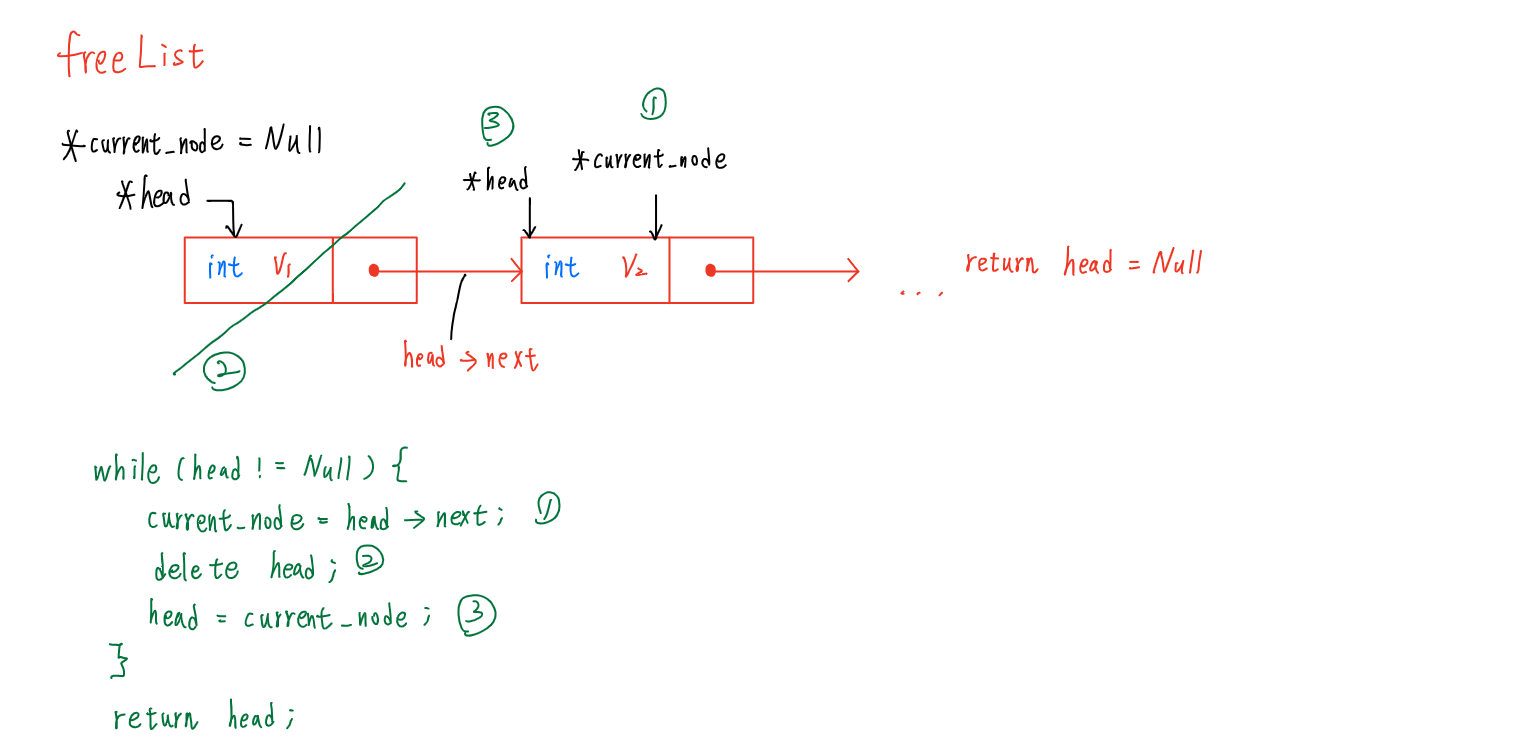 freeList
*current_node = Null
*head
③
*head
①
*current_node
int V₁
int V₂
...
return head = Null
②
head → next
while (head != Null) {
current_node = head → next; ①
delete head; ②
head = current_node; ③
}
return head;